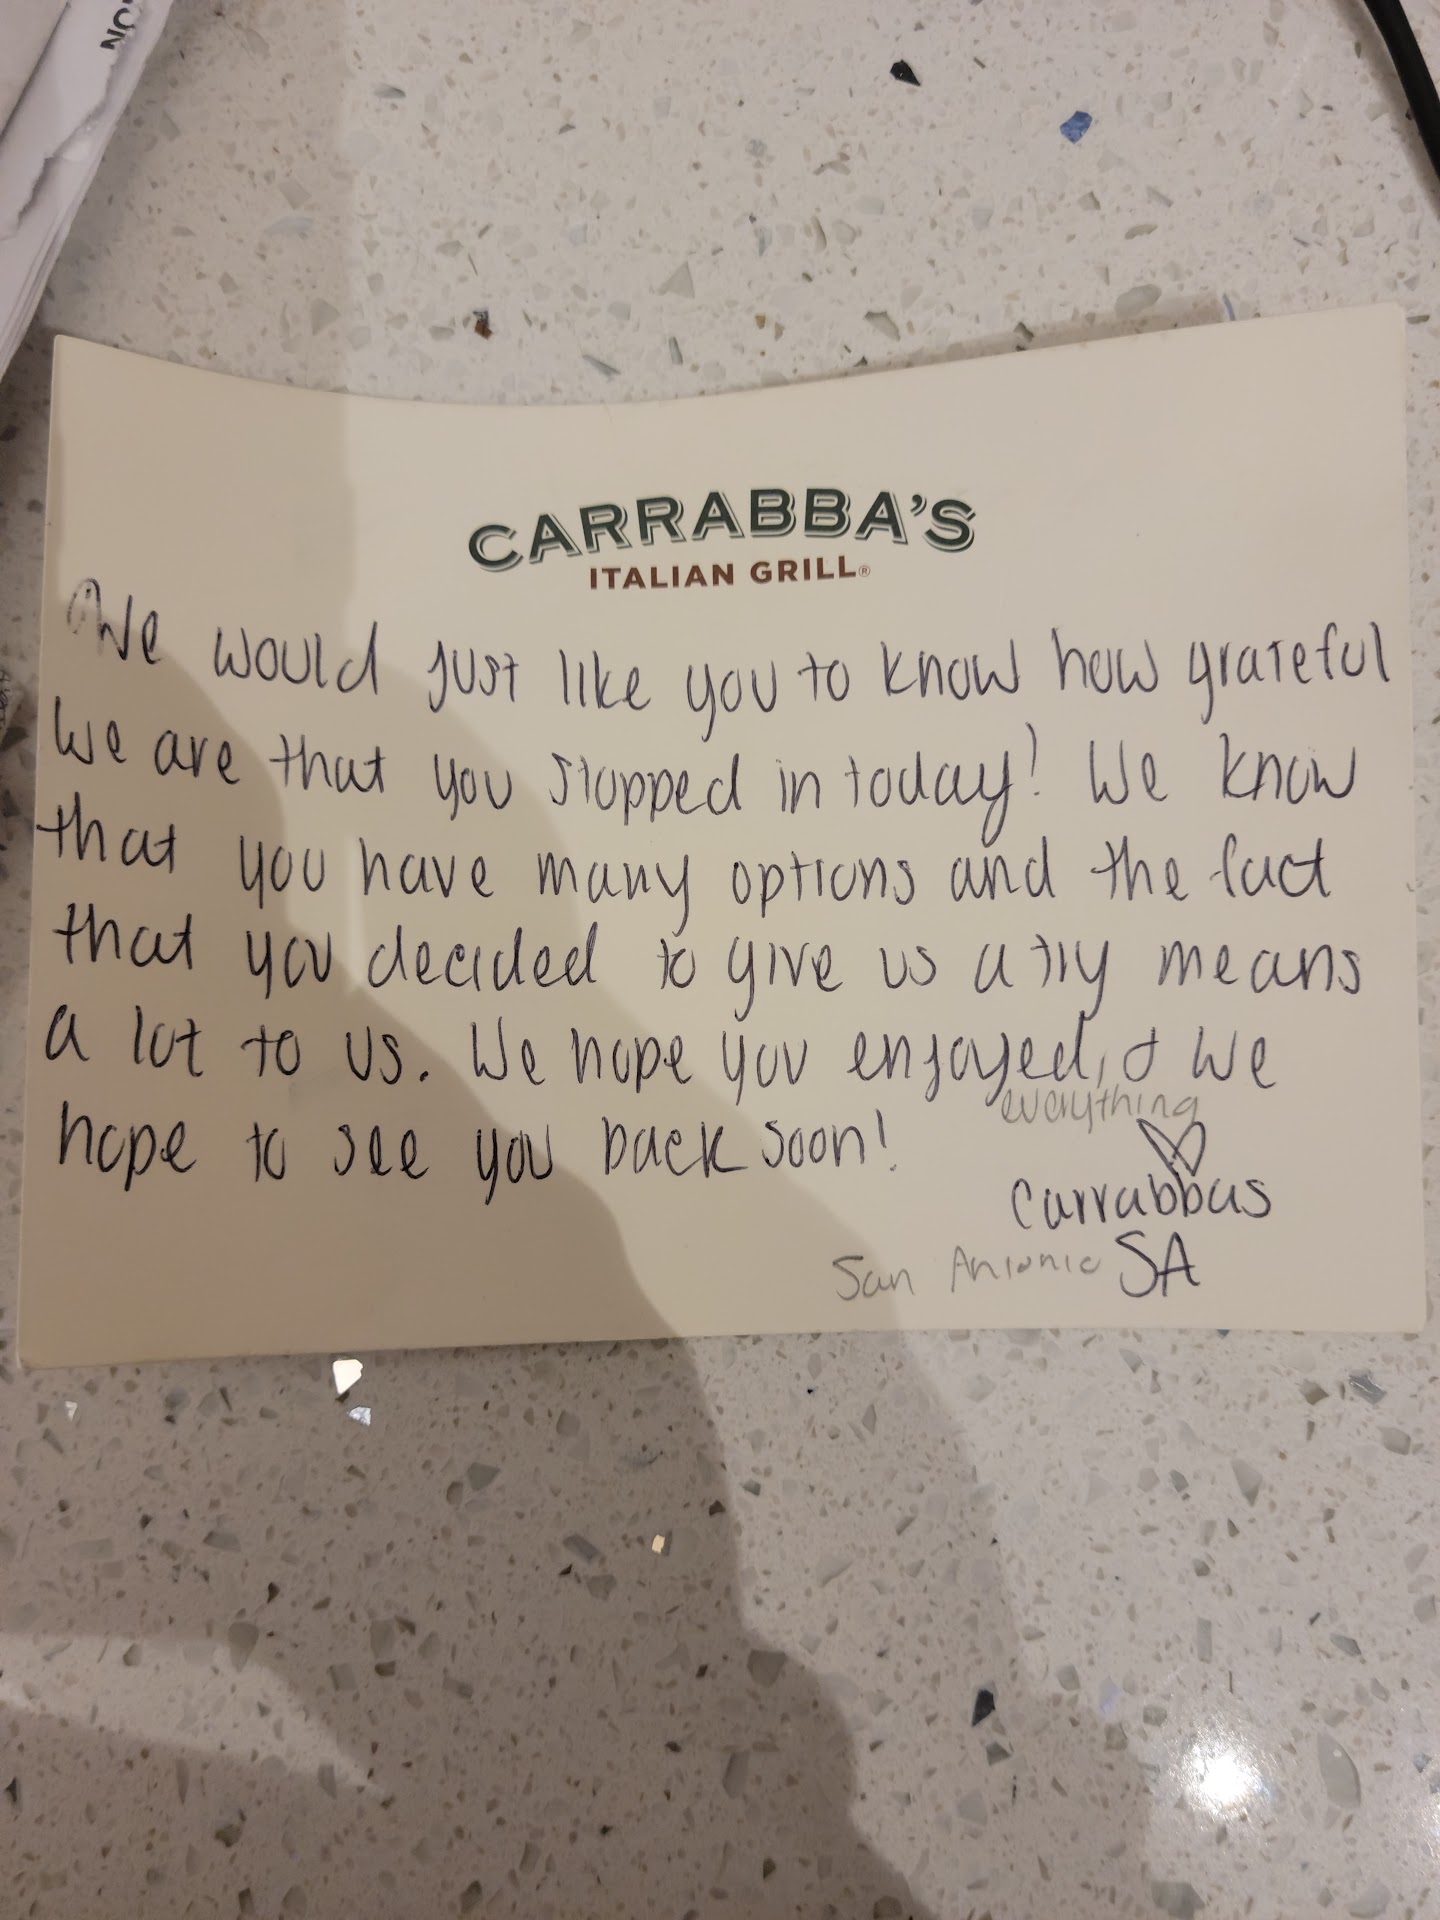 NOI
CARRABBA'S
ITALIAN GRILL®
We would just like you to know how grateful
We are that you stopped in today! We know
that you have many options and the fact
that you decided to give us a try means
a lot to us. We hope you enjoyed, & We
everything
hope to see you back soon!
Carrabbas
San Antonio SA